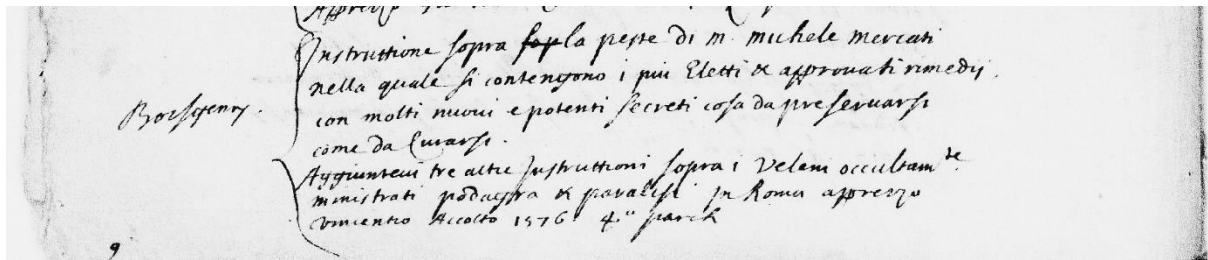 Instruttione sopra sop la peste di m. michele mercati
nella quale si contengono i più Eletti & approuati rimedij.
con molti nuoui e potenti secreti cosa da preseruarsi
come da Curarsi.
Aggiunteui tre altre Instruttioni sopra i Veleni occultam.te
ministrati podagra & paralisi in Roma appresso
vincentio Accolto 1576 4.o parch
9